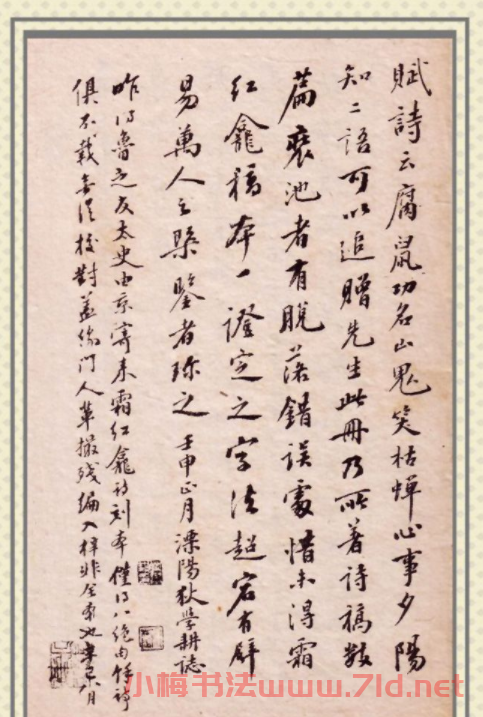 賦詩云腐鼠功名山鬼笑枯蟬心事夕陽
知二語可以追贈先生此冊乃所著詩稿數
篇裝池者有脫落錯誤處惜未得霜
紅龕稿本一證定之字法超宕有辟
易萬人之槩鑒者珍之 壬申正月溧陽狄學耕誌
昨得魯之友太史由京寄來霜紅龕詩刻本僅得八絕句餘詩
俱不載無從校對蓋緣門人草撮殘編入梓非全豹也
小梅书法www.7ld.net